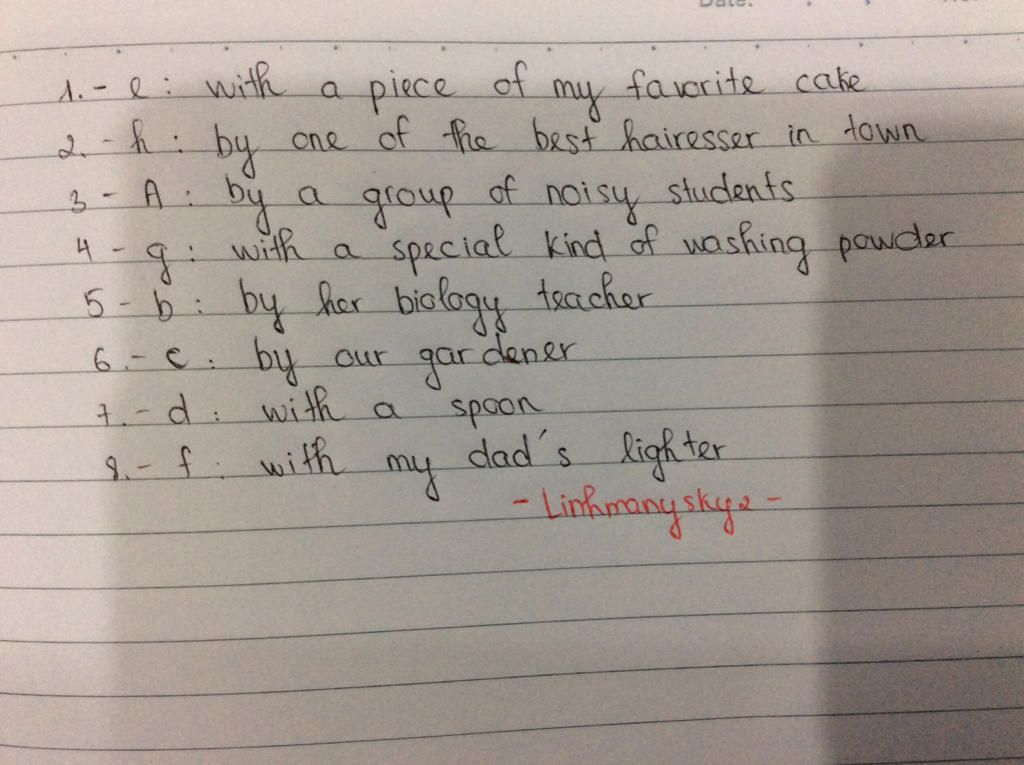 Date:
1.- e : with a piece of my favorite cake
2.- h : by one of the best hairesser in town
3 - A : by a group of noisy students
4 - g : with a special kind of washing powder
5 - b : by her biology teacher
6.- c : by our gardener
7.- d : with a spoon
8.- f : with my dad's lighter
- Linhmanysky2 -